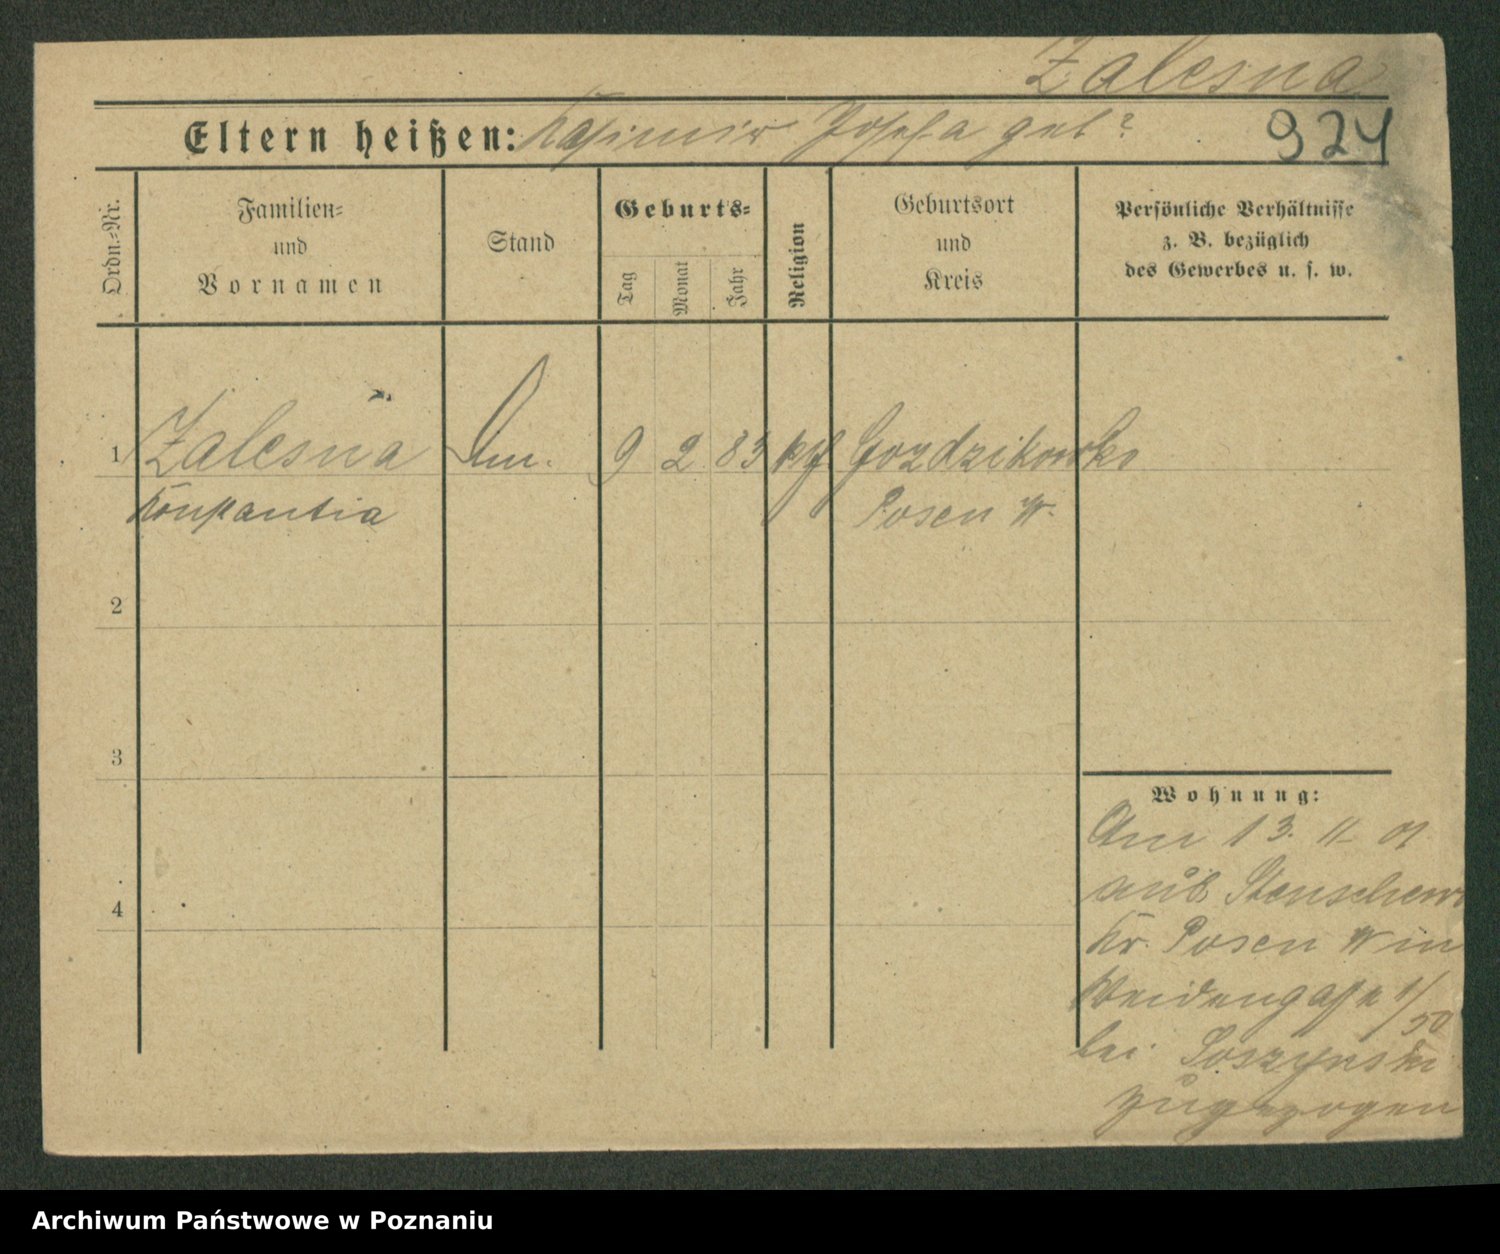 Zalesna
Eltern heißen: Kasimir Josefa geb ?
924
Ordn.-Nr.
Familien-
und
Vornamen
Stand
Geburts-
Tag
Monat
Jahr
Religion
Geburtsort
und
Kreis
Persönliche Verhältnisse
z. B. bezüglich
des Gewerbes u. s. w.
1 Zalesna 9 2 83 kth Gozdzikowko
Konstantia Posen W.
2
3
4
Wohnung:
Am 13. 11 01
aus Stenschewo
Kr. Posen W in
Weidengasse 1/50
bei Soszynski
zugezogen
Archiwum Państwowe w Poznaniu